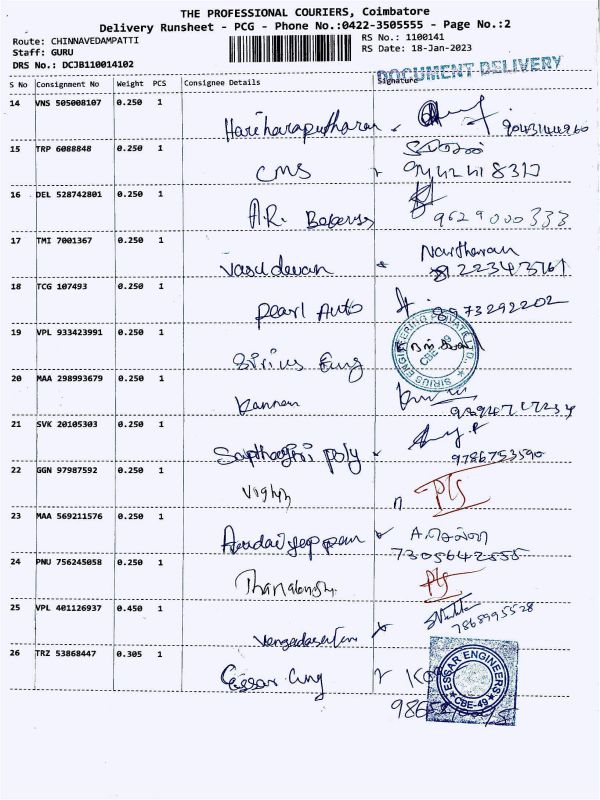 THE PROFESSIONAL COURIERS, Coimbatore
Delivery Runsheet - PCG - Phone No.:0422-3505555 - Page No.:2
Route: CHINNAVEDAMPATTI RS No.: 1100141
Staff: GURU RS Date: 18-Jan-2023
DRS No.: DCJB110014102
DOCUMENT DELIVERY
S No Consignment No Weight PCS Consignee Details Signature
14 VNS 505008107 0.250 1
Hariharaputharan
15 TRP 6088848 0.250 1
CMS
16 DEL 528742801 0.250 1
A.R. 9629000333
17 TMI 7001367 0.250 1
Vasudevan
18 TCG 107493 0.250 1
Pearl Auto 8973292202
19 VPL 933423991 0.250 1
Sirius Eng SIRIUS ENGINEERING PRIVATE LTD., CBE-49
20 MAA 298993679 0.250 1
Kannan
21 SVK 20105303 0.250 1
Sapthagiri Poly 9786753590
22 GGN 97987592 0.250 1
23 MAA 569211576 0.250 1
7305642555
24 PNU 756245058 0.250 1
25 VPL 401126937 0.450 1
7868995528
26 TRZ 53868447 0.305 1
Essar Eng ESSAR ENGINEERS CBE-49